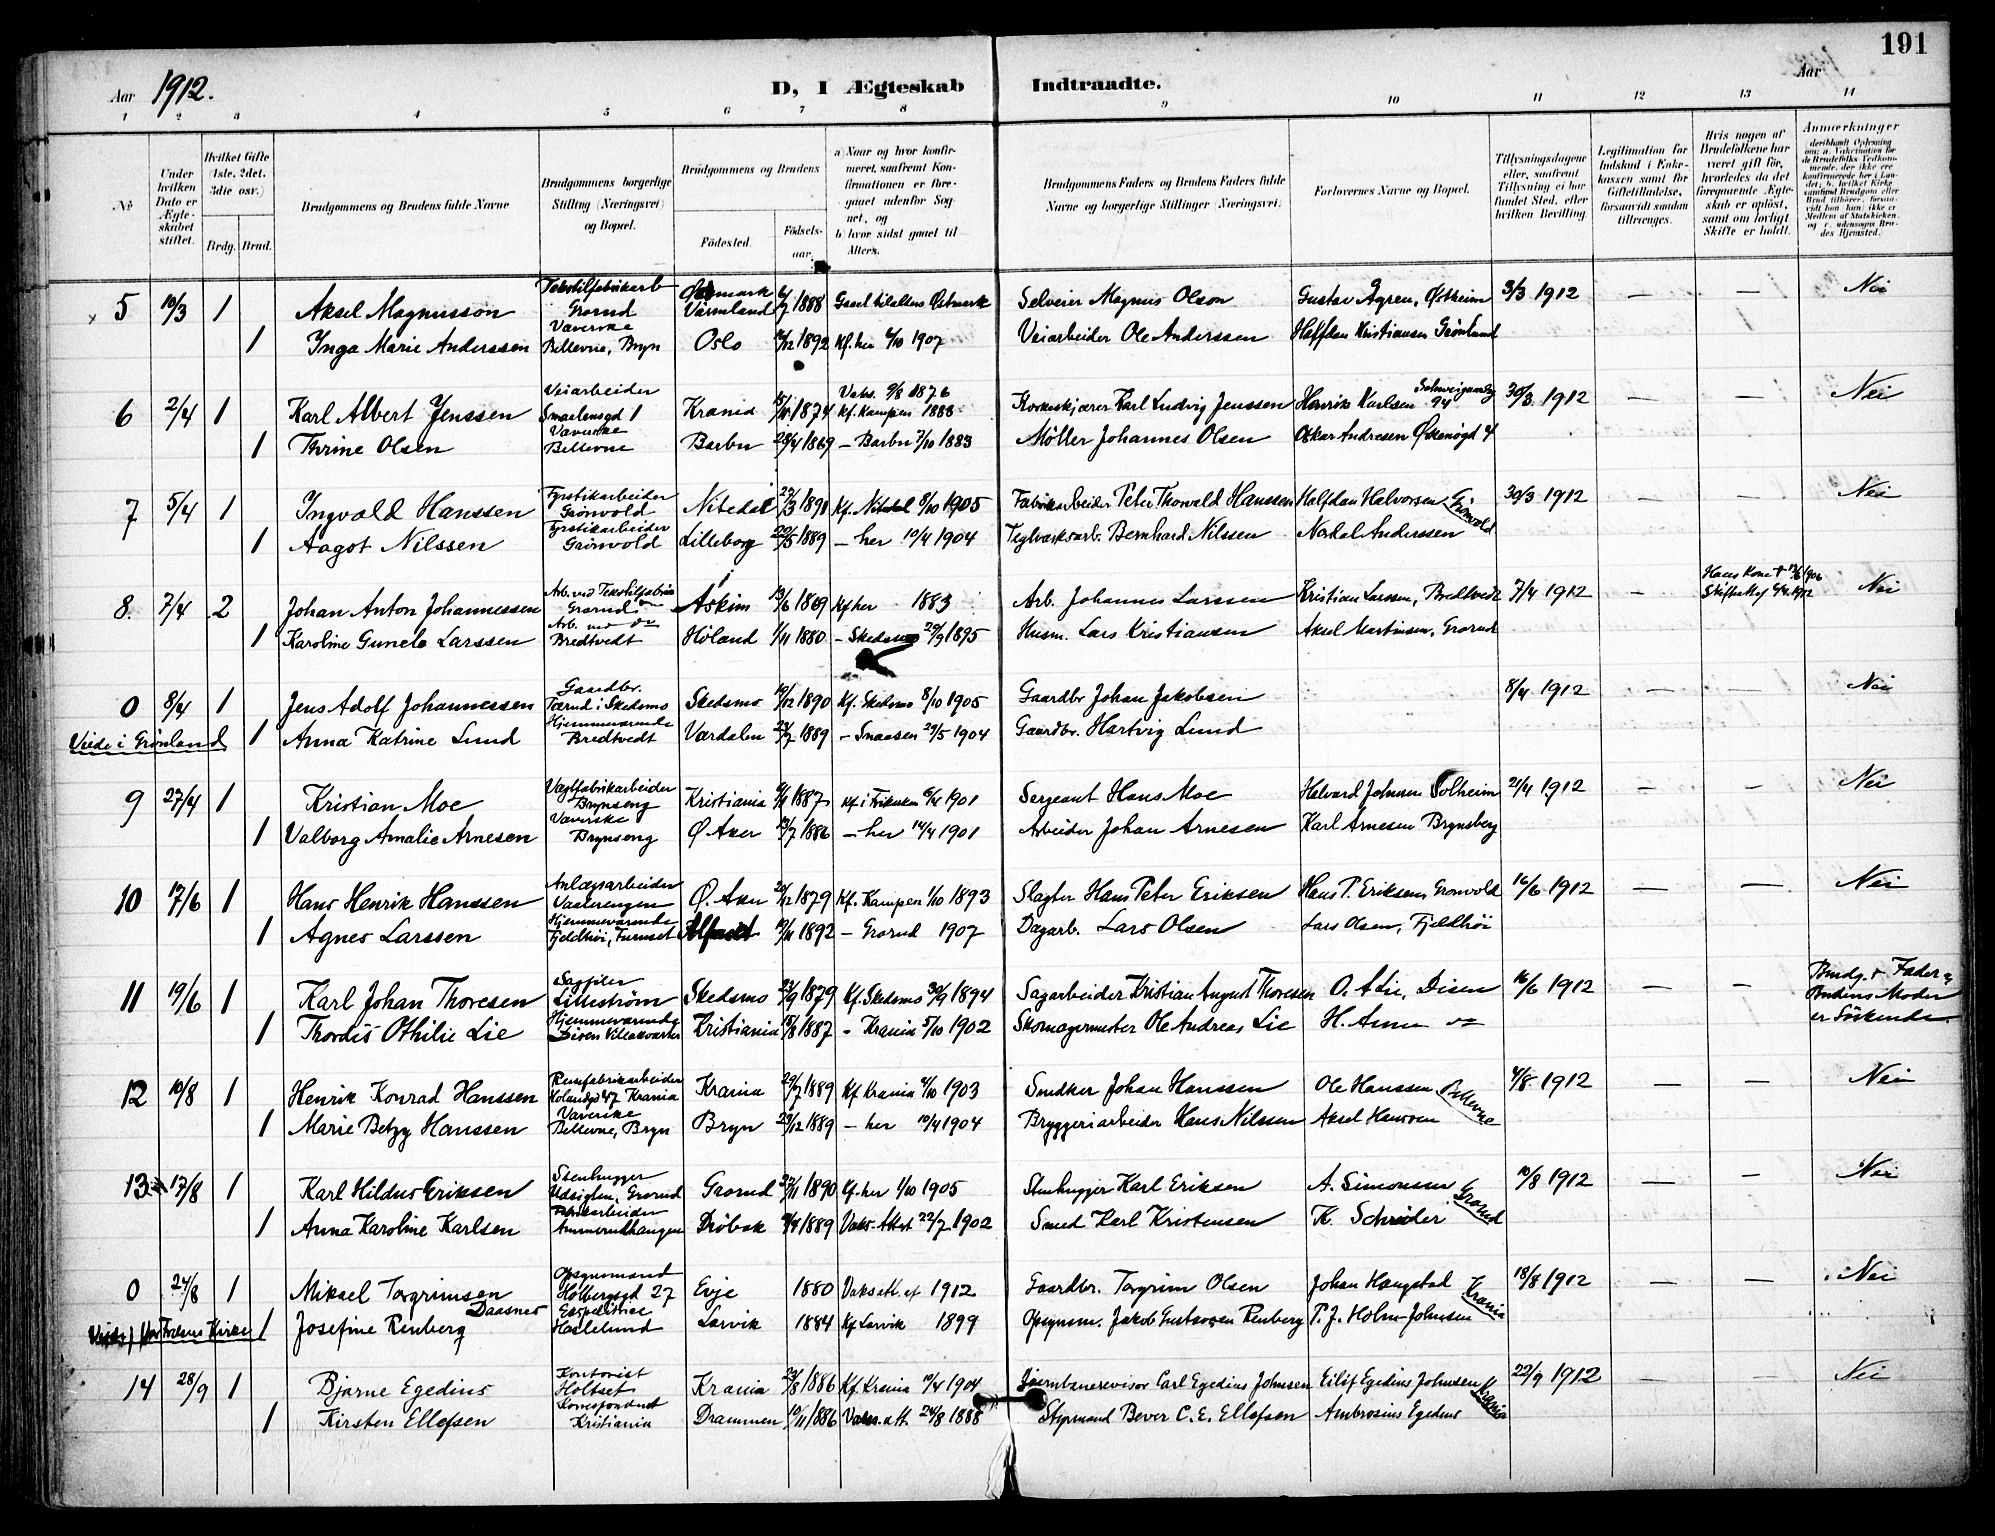 191
Aar 1912.
D, I Ægteskab Indtraadte.
Aar
1 2 3 4 5 6 7 8 9 10 11 12 13 14
No
Under hvilken Dato er Ægteskabet stiftet.
Hvilket Gifte (1ste, 2det, 3die osv.)
Brdg. Brud.
Brudgommens og Brudens fulde Navne
Brudgommens borgerlige Stilling (Næringsvei) og Bopæl.
Brudgommens og Brudens
Födested. Födselsaar.
a) Naar og hvor konfirmeret, saafremt Konfirmationen er foregaaet udenfor Sognet, og
b) hvor sidst gaaet til Alters.
Brudgommens Faders og Brudens Faders fulde Navne og borgerlige Stillinger (Næringsvei).
Forlovernes Navne og Bopæl.
Tillysningsdagene eller, saafremt Tillysning ei har fundet Sted, efter hvilken Bevilling.
Legitimation for Indskud i Enkekassen samt for Giftetilladelse, forsaavidt saadan tiltrænges.
Hvis nogen af Brudefolkene har været gift för, hvorledes da det foregaaende Ægteskab er oplöst, samt om lovligt Skifte er holdt.
Anmærkninger
5 10/3 1 Aksel Magnusson Tekstilfabrikarb Grorud Värmland 1888 Selveier Magnus Olson Gustav Ågren, Østheim 3/3 1912 — — Nei
1 Inga Marie Anderssen Væverske Bellevue, Bryn Oslo 1892 Kf. her 1/10 1907 Veiarbeider Ole Anderssen Halfdan Kristiansen Grønlund
6 2/4 1 Karl Albert Jenssen Veiarbeider Smalensgd 1 Krania 1874 Vaks. 9/8 1876 Kf. Kampen 1888 Korkeskjærer Karl Ludvig Jenssen Henrik Karlsen Schweigaardsg 94 30/3 1912 — — Nei
1 Thrine Olsen Væverske Bellevue Barbu 28/4 1869 — Barbu 7/10 1883 Møller Johannes Olsen Oskar Andresen 4
7 5/4 1 Ingvald Hanssen Fyrstikarbeider Grønvold Nitedal 27/3 1890 Kf. Nitedal 8/10 1905 Fabrikarbeider Peter Thorvald Hanssen Halfdan Halvorsen Grønvold 30/3 1912 — — Nei
1 Aagot Nilssen Fyrstikarbeider Grønvold Lilleborg 22/5 1889 — her 10/4 1904 Teglværksarb. Bernhard Nilssen Anderssen
8. 7/4 2 Johan Anton Johannessen Arb. ved Tekstilfabrik Grorud Askim 13/6 1869 Kf her 1883 Arb. Johannes Larssen Kristian Larssen, Bredtvedt 7/4 1912 — Hans Kone † 1906 Nei
1 Karoline Gunela Larssen Arb. ved do Bredtvedt Høland 1/11 1880 — Skedsmo 29/9 1895 Husm. Lars Kristiansen Aksel Martinsen, Grorud
0 8/4 1 Jens Adolf Johannessen Gaardbr. Tærud i Skedsmo Skedsmo 19/12 1890 Kf. Skedsmo 8/10 1905 Gaardbr Johan Jakobsen 8/4 1912 — — Nei
Viede i Grønland 1 Anna Katrine Lund Hjemmeværende Bredtvedt Værdalen 1889 — Snaasen 29/5 1904 Gaardbr. Hartvig Lund
9 27/4 1 Kristian Moe Vægtfabrikarbeider Brynseng Kristiania 1887 1901 Sergeant Hans Moe Halvard Johnsen Solheim 21/4 1912 — — Nei
1 Valborg Amalie Arnesen Væverske Brynseng Ø Aker 13/7 1886 — her 14/4 1901 Arbeider Johan Arnesen Karl Arnesen Brynsberg
10 17/6 1 Hans Henrik Hanssen Anlægsarbeider Vaalerengen Ø. Aker 1879 Kf. Kampen 1/10 1893 Slagter Hans Peter Eriksen Hans P. Eriksen, Grønvold 16/6 1912 — — Nei
1 Agnes Larssen Hjemmeværende Fjeldhøi, Furuset 1892 — Grorud 1907 Dagarb. Lars Olsen Lars Olsen, Fjeldhøi
11 19/6 1 Karl Johan Thoresen Sagfiler Lillestrøm Skedsmo 23/9 1879 Kf. Skedsmo 30/9 1894 Sagarbeider Kristian August Thoresen O. A Lie, Disen 16/6 1912 — — Brudg. Fader og Brudens Moder er Søskende.
1 Thordis Othilie Lie Hjemmeværende Disen Kristiania 1887 — Krania 5/10 1902 Skomagermester Ole Andreas Lie H. do
12 10/8 1 Henrik Konrad Hanssen Remfabrikarbeider 47 Krania Krania 29/7 1889 Kf Krania 4/10 1903 Snedker Johan Hanssen Ole Hanssen Bellevue 4/8 1912 — — Nei
1 Marie Betzy Hanssen Væverske Bellevue, Bryn Bryn 29/12 1889 — her 10/4 1904 Bryggeriarbeider Hans Nilssen Aksel Hanssen
13 17/8 1 Karl Hildus Eriksen Stenhugger Udsigten, Grorud Grorud 1890 Kf. her 1/10 1905 Stenhugger Karl Eriksen A. Simonsen Grorud 10/8 1912 — — Nei
1 Anna Karoline Karlsen Ammerudhaugen Drøbak 1889 Vaks. Attest 22/7 1902 Smed Karl Kristensen K. Schrøder
0 24/8 1 Mikael Torgrimsen Daasnes Opsynsmand Holbergsgd 27 Evje 1880 Vaks att. af 1912 Gaardbr. Torgrim Olsen Johan Haugstad Krania 18/8 1912 — — Nei
Kirke 1 Josefine Renberg Haslelund Larvik 1884 Kf Larvik 1899 Opsynsm. Jakob Gustavsen Renberg P. J. Holm-Johnsen
14 28/9 1 Bjarne Egedius Kontorist Holtset Krania 23/8 1886 Kf. Krania 10/4 1904 Jernbanerevisor Carl Egedius Johnsen Eilif Egedius Johnsen Krania 22/9 1912 — — Nei
1 Kirsten Ellefsen Korrespondent Kristiania Drammen 10/11 1886 Vaks. att. 24/8 1888 Styrmand Bever C. E. Ellefsen Ambrosius Egedius